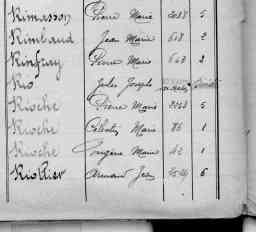 Rimasson Pierre Marie 2088 5
Rimbaud Jean Marie 618 2
Rinfray Pierre Marie 643 2
Rio Jules Joseph
Rioche Pierre Marie 2253 5
Rioche Célestin Marie 86 1
Rioche Eugène Marie 42 1
Riollier Armand Jean 6